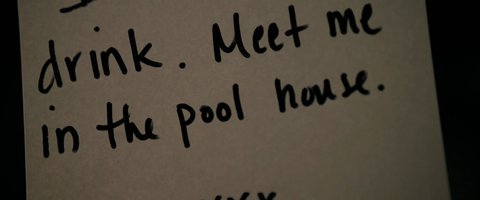 drink. Meet me
in the pool house.